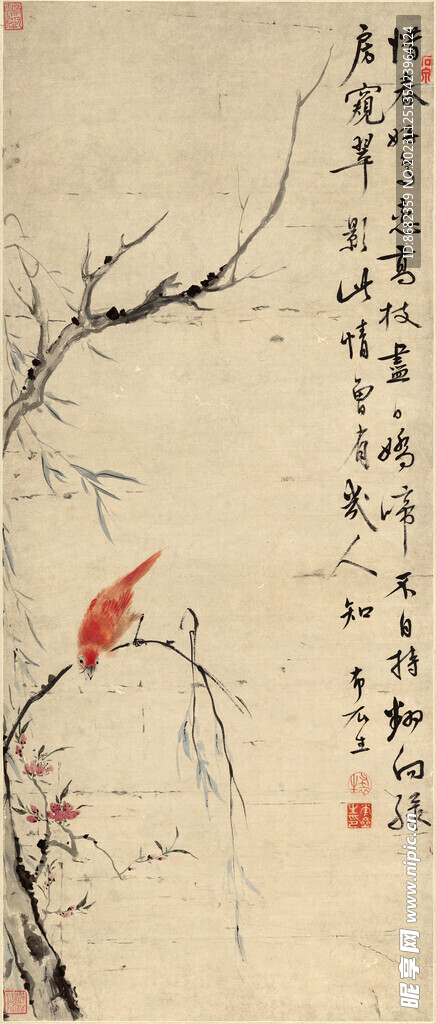 惜高枝盡嬌啼不自持翻向綠
房窺翠影此情曾有幾人知
布衣生
ID:8682359 NO:20231125135423964124
昵享网 www.nipic.cn